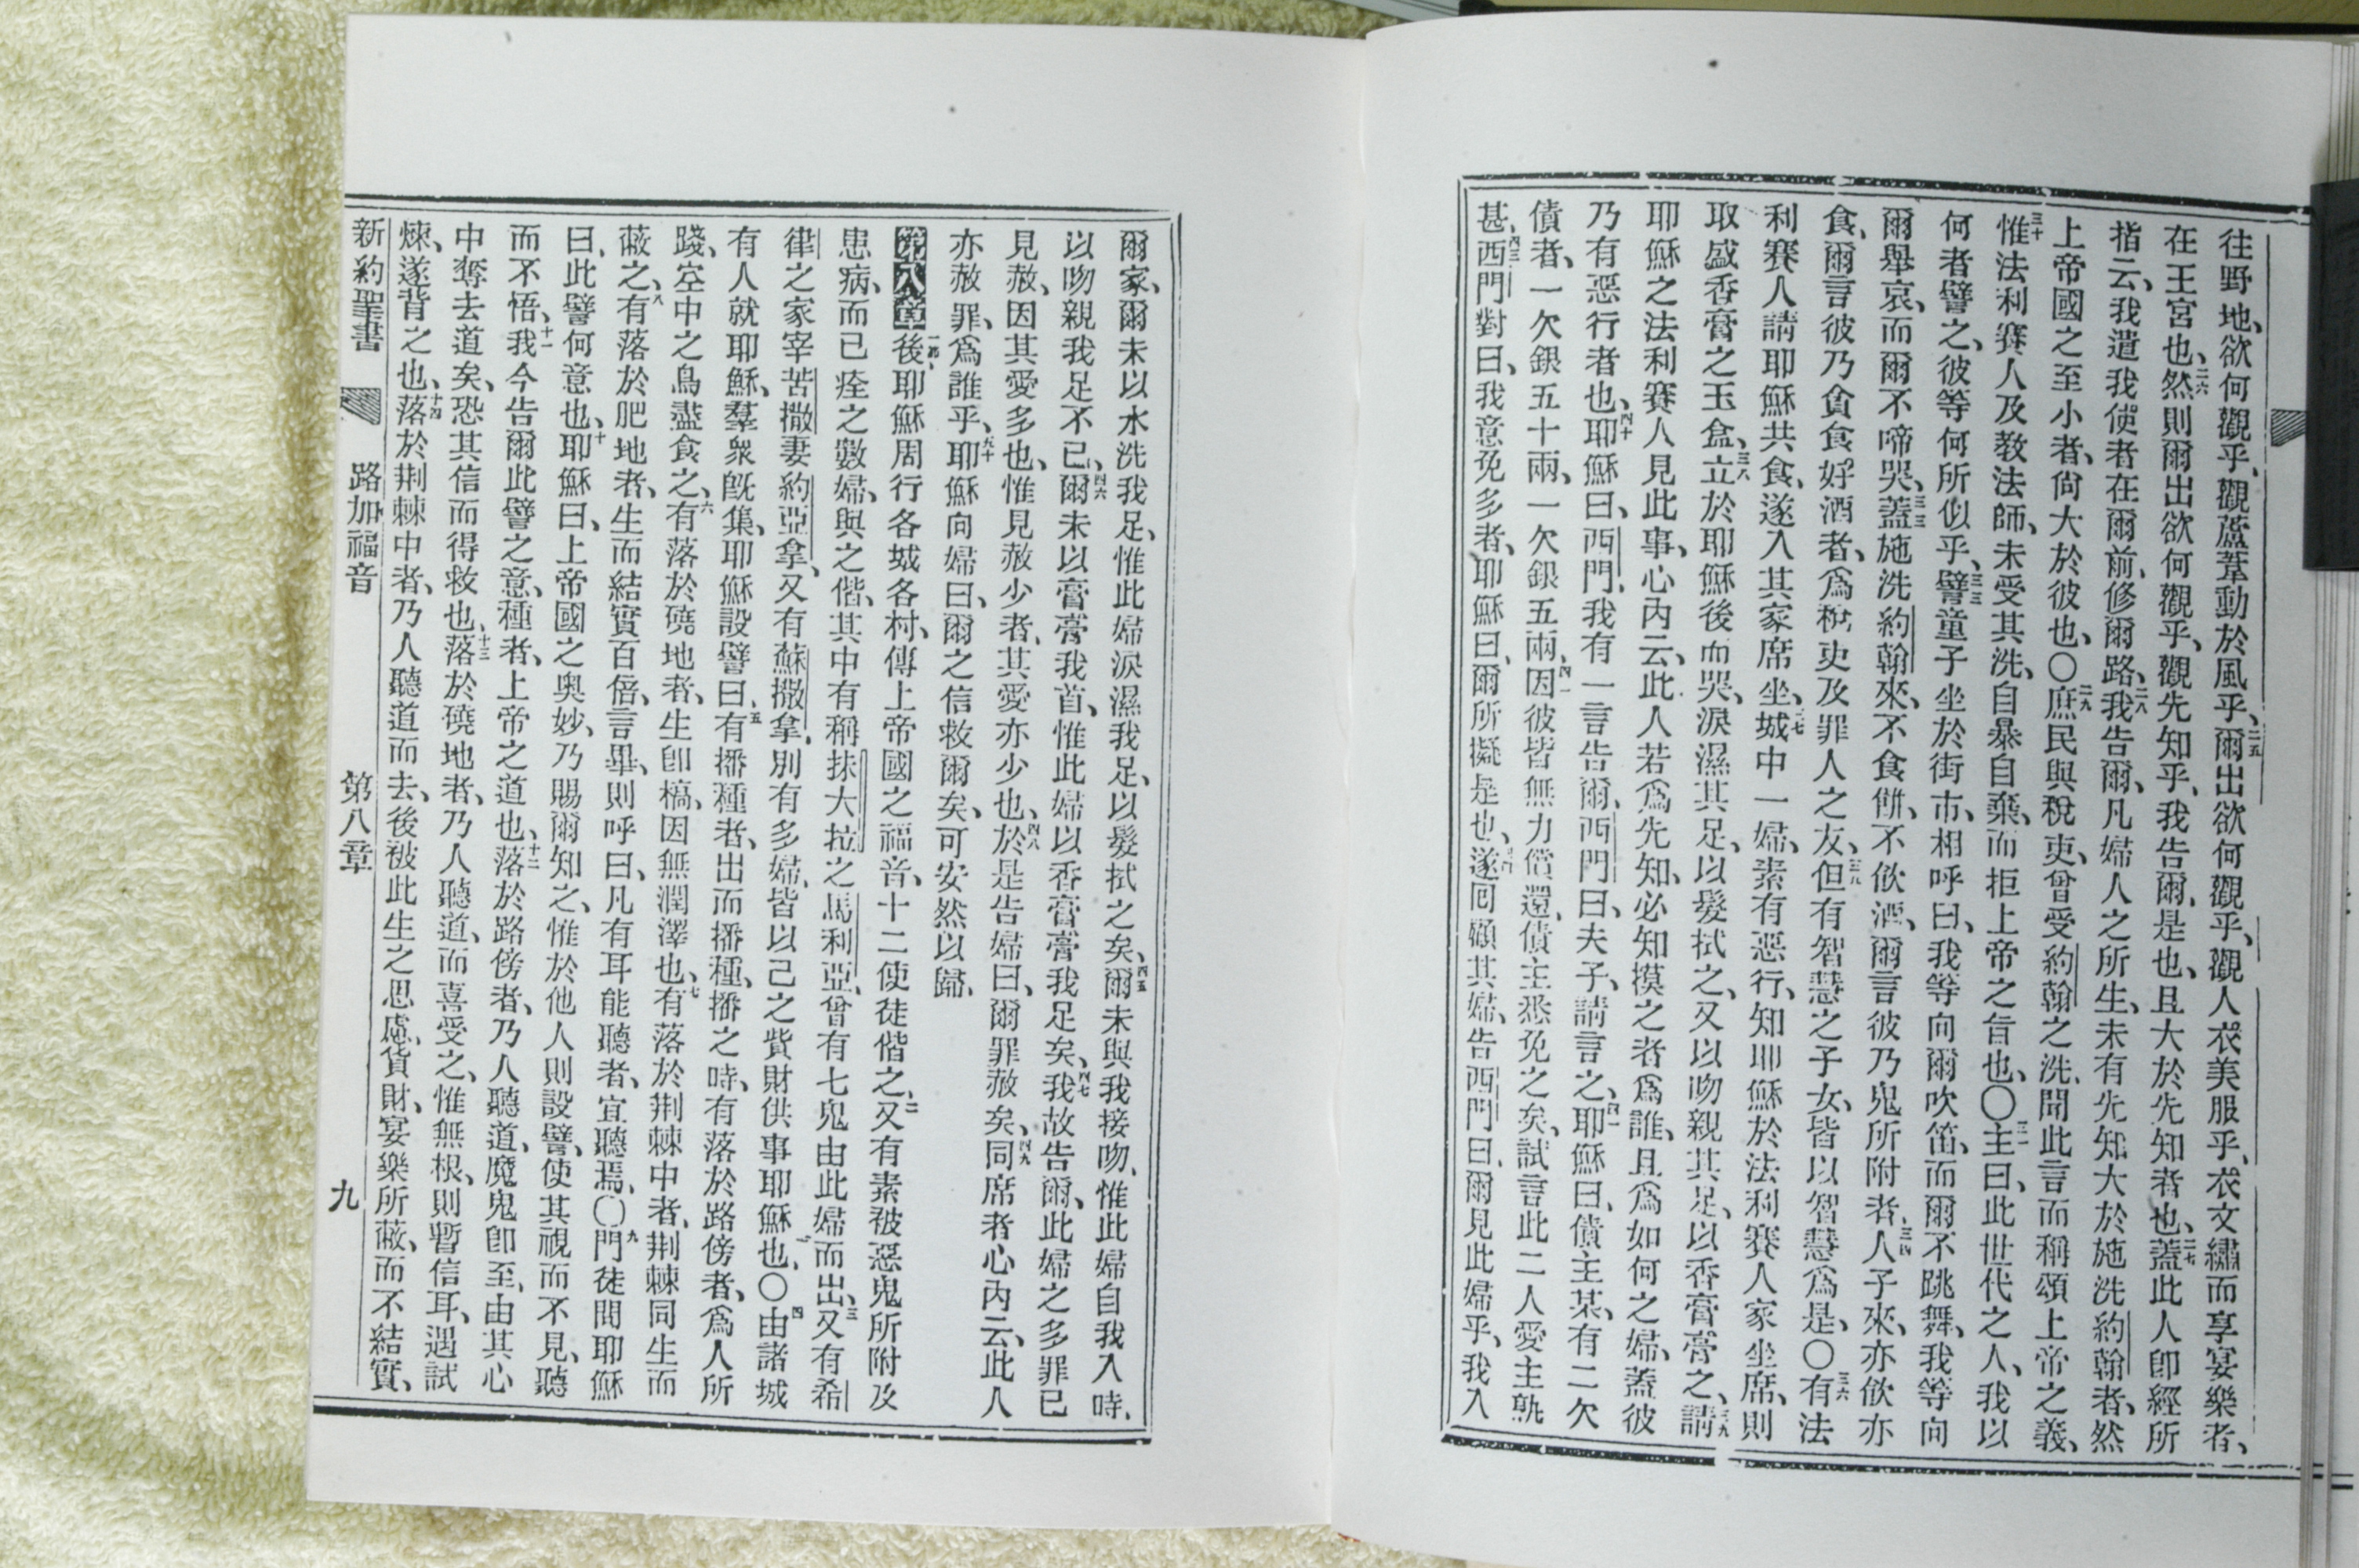 往野地、欲何觀乎、觀蘆葦動於風乎、二五爾出欲何觀乎、觀人衣美服乎、衣文繡而享宴樂者、
在王宮也、二六然則爾出欲何觀乎、觀先知乎、我告爾、是也、且大於先知者也、二七蓋此人卽經所
指云、我遣我使者在爾前、修爾路、二八我告爾、凡婦人之所生、未有先知大於施洗約翰者、然
上帝國之至小者、尙大於彼也、〇二九庶民與稅吏、曾受約翰之洗、聞此言而稱頌上帝之義、
三十惟法利賽人及教法師、未受其洗、自暴自棄、而拒上帝之旨也、〇三一主曰、此世代之人、我以
何者譬之、彼等何所似乎、三二譬童子坐於街市、相呼曰、我等向爾吹笛、而爾不跳舞、我等向
爾舉哀、而爾不啼哭、三三蓋施洗約翰來、不食餅、不飲酒、爾言彼乃鬼所附者、三四人子來、亦飲亦
食、爾言彼乃貪食好酒者、爲稅吏及罪人之友、三五但有智慧之子女、皆以智慧爲是、〇三六有法
利賽人請耶穌共食、遂入其家席坐、三七城中一婦、素有惡行、知耶穌於法利賽人家坐席、則
取盛香膏之玉盒、三八立於耶穌後而哭、淚濕其足、以髮拭之、又以吻親其足、以香膏膏之、三九請
耶穌之法利賽人見此事、心内云、此人若爲先知、必知摸之者爲誰、且爲如何之婦、蓋彼
乃有惡行者也、四十耶穌曰、西門、我有一言告爾、西門曰、夫子、請言之、四一耶穌曰、債主某、有二欠
債者、一欠銀五十兩、一欠銀五兩、因彼皆無力償還、債主悉免之矣、試言此二人愛主孰
甚、四三西門對曰、我意免多者、耶穌曰、爾所擬是也、遂回顧其婦、告西門曰、爾見此婦乎、我入
爾家、爾未以水洗我足、惟此婦淚濕我足、以髮拭之矣、四五爾未與我接吻、惟此婦自我入時、
以吻親我足不已、四六爾未以膏膏我首、惟此婦以香膏膏我足矣、四七我故告爾、此婦之多罪已
見赦、因其愛多也、惟見赦少者、其愛亦少也、四八於是告婦曰、爾罪赦矣、四九同席者心内云、此人
亦赦罪、爲誰乎、五十耶穌向婦曰、爾之信救爾矣、可安然以歸、
第八章 一節後、耶穌周行各城各村、傳上帝國之福音、十二使徒偕之、二又有素被惡鬼所附及
患病、而已痊之數婦、與之偕、其中有稱抹大拉之馬利亞、曾有七鬼由此婦而出、三又有希
律之家宰苦撒妻約亞拿、又有蘇撒拿、別有多婦、皆以己之貲財供事耶穌也、〇四由諸城
有人就耶穌、羣衆旣集、耶穌設譬曰、五有播種者、出而播種、播之時、有落於路傍者、爲人所
踐、空中之鳥盡食之、六有落於磽地者、生卽槁、因無潤澤也、七有落於荆棘中者、荆棘同生而
蔽之、八有落於肥地者、生而結實百倍、言畢、則呼曰、凡有耳能聽者、宜聽焉、〇九門徒問耶穌
曰、此譬何意也、十耶穌曰、上帝國之奧妙、乃賜爾知之、惟於他人則設譬、使其視而不見、聽
而不悟、十一我今告爾此譬之意、種者、上帝之道也、十二落於路傍者、乃人聽道、魔鬼卽至、由其心
中奪去道矣、恐其信而得救也、十三落於磽地者、乃人聽道、而喜受之、惟無根、則暫信耳、遇試
煉、遂背之也、十四落於荆棘中者、乃人聽道而去、後被此生之思慮、貨財、宴樂所蔽、而不結實、
新約聖書 路加福音 第八章 九